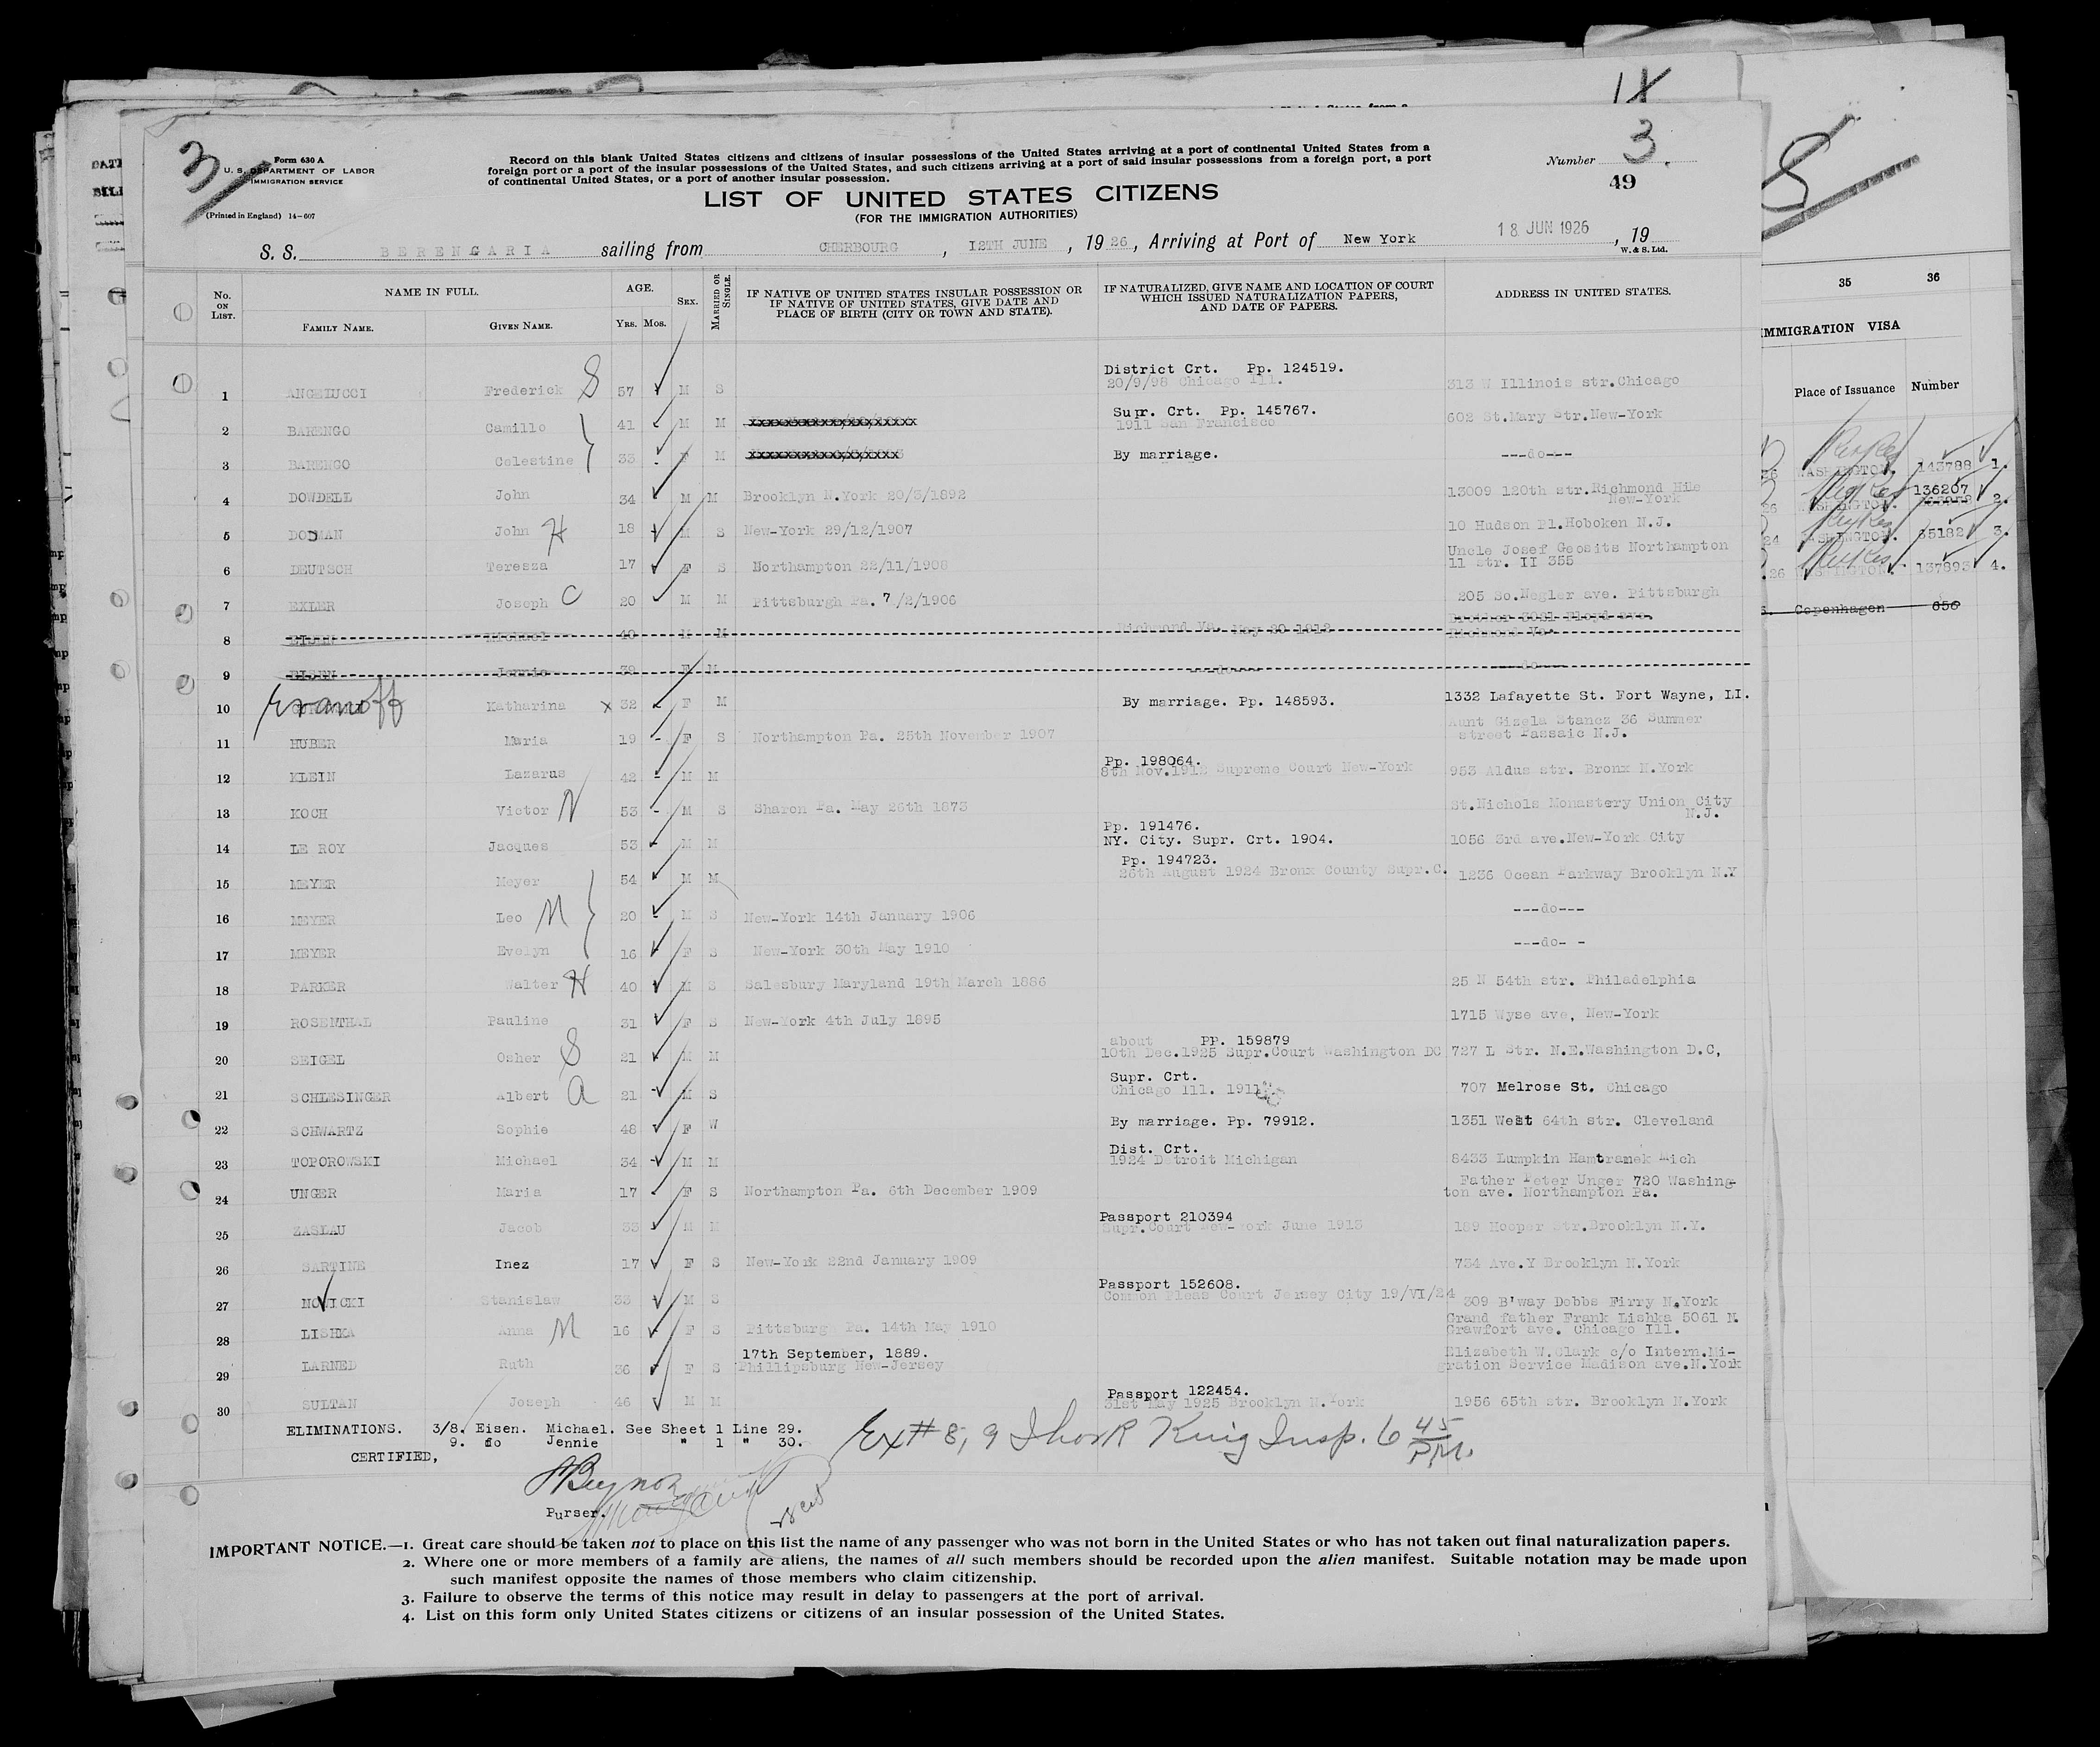 1X
3
Form 630 A
U. S. DEPARTMENT OF LABOR
IMMIGRATION SERVICE
(Printed in England) 14-607
Record on this blank United States citizens and citizens of insular possessions of the United States arriving at a port of continental United States from a
foreign port or a port of the insular possessions of the United States, and such citizens arriving at a port of said insular possessions from a foreign port, a port
of continental United States, or a port of another insular possession.
Number 3.
49
LIST OF UNITED STATES CITIZENS
(FOR THE IMMIGRATION AUTHORITIES)
S. S. BERENGARIA sailing from CHERBOURG, 12TH JUNE, 1926, Arriving at Port of New York 18 JUN 1926, 19
W. & S. Ltd.
No. ON LIST. NAME IN FULL. FAMILY NAME. GIVEN NAME. AGE. YRS. MOS. SEX. MARRIED OR SINGLE. IF NATIVE OF UNITED STATES INSULAR POSSESSION OR IF NATIVE OF UNITED STATES, GIVE DATE AND PLACE OF BIRTH (CITY OR TOWN AND STATE). IF NATURALIZED, GIVE NAME AND LOCATION OF COURT WHICH ISSUED NATURALIZATION PAPERS, AND DATE OF PAPERS. ADDRESS IN UNITED STATES.
District Crt. Pp. 124519.
1 ANGELUCCI Frederick S 57 M S 20/9/98 Chicago Ill. 313 W Illinois str.Chicago
Supr. Crt. Pp. 145767.
2 BARENGO Camillo 41 M M 1911 San Francisco 602 St.Mary Str.New-York
3 BARENGO Celestine 33 F M By marriage. ---do---
4 DOWDELL John 34 M M Brooklyn N.York 20/3/1892 13009 120th str.Richmond Hile
New-York
5 DOJMAN John H 18 M S New-York 29/12/1907 10 Hudson Pl.Hoboken N.J.
Uncle Josef Geosits Northampton
6 DEUTSCH Teresza 17 F S Northampton 22/11/1908 11 Str. II 355
7 EXLER Joseph C 20 M M Pittsburgh Pa. 7/2/1906 205 So.Negler ave. Pittsburgh
Brother 3021 Floyd ave.
8 EISEN Michael 40 M M Richmond Va. May 20 1912 Richmond Va.
9 EISEN Jennie 39 F M ---do--- ---do---
10 Ivanoff Katharina x 32 F M By marriage. Pp. 148593. 1332 Lafayette St. Fort Wayne, LI.
Aunt Gizela Stancz 36 Summer
11 HUBER Maria 19 F S Northampton Pa. 25th November 1907 street Passaic N.J.
Pp. 198064.
12 KLEIN Lazarus 42 M M 8th Nov.1912 Supreme Court New-York 953 Aldus str. Bronx N.York
13 KOCH Victor N 53 M S Sharon Pa. May 26th 1873 St.Nichols Monastery Union City
N.J.
Pp. 191476.
14 LE ROY Jacques 53 M M NY. City. Supr. Crt. 1904. 1056 3rd ave.New-York City
Pp. 194723.
15 MEYER Meyer 54 M M 26th August 1924 Bronx County Supr.C. 1236 Ocean Parkway Brooklyn N.Y
16 MEYER Leo M 20 M S New-York 14th January 1906 ---do---
17 MEYER Evelyn 16 F S New-York 30th May 1910 ---do- -
18 PARKER Walter H 40 M S Salesbury Maryland 19th March 1886 25 N 54th str. Philadelphia
19 ROSENTHAL Pauline 31 F S New-York 4th July 1895 1715 Wyse ave, New-York
about PP. 159879
20 SEIGEL Osher S 21 M M 10th Dec.1925 Supr.Court Washington DC 727 L Str. N.E.Washington D.C,
Supr. Crt.
21 SCHLESINGER Albert a 21 M S Chicago Ill. 1911 707 Melrose St. Chicago
22 SCHWARTZ Sophie 48 F W By marriage. Pp. 79912. 1351 West 64th str. Cleveland
Dist. Crt.
23 TOPOROWSKI Michael 34 M M 1924 Detroit Michigan 8433 Lumpkin Hamtramek Mich
Father Peter Unger 720 Washing-
24 UNGER Maria 17 F S Northampton Pa. 6th December 1909 ton ave. Northampton Pa.
Passport 210394
25 ZASLAU Jacob 33 M M Supr.Court New-York June 1913 189 Hooper Str.Brooklyn N.Y.
26 SARTINE Inez 17 F S New-York 22nd January 1909 734 Ave.Y Brooklyn N.York
Passport 152608.
27 NOWICKI Stanislaw 33 M S Common Pleas Court Jersey City 19/VI/24 309 B'way Dobbs Firry N.York
Grand father Frank Lishka 5061 N.
28 LISHKA Anna M 16 F S Pittsburg Pa. 14th May 1910 Crawfort ave. Chicago Ill.
17th September, 1889. Elizabeth W.Clark c/o Intern.Mi-
29 LARNED Ruth 36 F S Phillipsburg New-Jersey gration Service Madison ave.N.York
Passport 122454.
30 SULTAN Joseph 46 M M 31st May 1925 Brooklyn N.York 1956 65th str. Brooklyn N.York
ELIMINATIONS. 3/8. Eisen. Michael. See Sheet 1 Line 29.
9. do Jennie " 1 " 30.
CERTIFIED,
Ex# 8, 9 King Insp. 6 45 P.M.
Purser.
IMPORTANT NOTICE.—1. Great care should be taken not to place on this list the name of any passenger who was not born in the United States or who has not taken out final naturalization papers.
2. Where one or more members of a family are aliens, the names of all such members should be recorded upon the alien manifest. Suitable notation may be made upon
such manifest opposite the names of those members who claim citizenship.
3. Failure to observe the terms of this notice may result in delay to passengers at the port of arrival.
4. List on this form only United States citizens or citizens of an insular possession of the United States.
35 36
IMMIGRATION VISA
Place of Issuance Number
WASHINGTON. 143788 1.
136207
WASHINGTON. 2.
WASHINGTON. 35182 3.
WASHINGTON. 137893 4.
Copenhagen 656